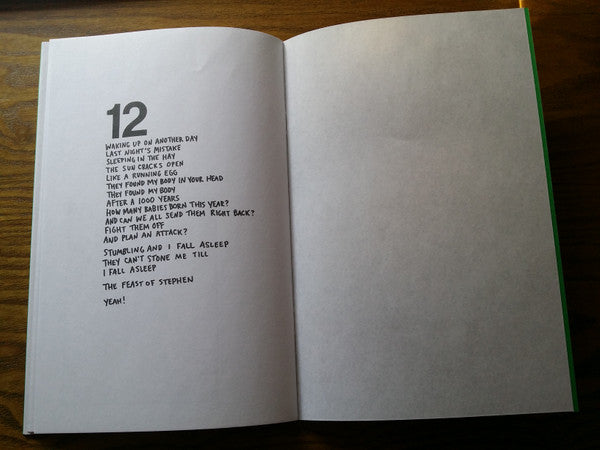 12
WAKING UP ON ANOTHER DAY
LAST NIGHT'S MISTAKE
SLEEPING IN THE HAY
THE SUN CRACKS OPEN
LIKE A RUNNING EGG
THEY FOUND MY BODY IN YOUR HEAD
THEY FOUND MY BODY
AFTER A 1000 YEARS
HOW MANY BABIES BORN THIS YEAR?
AND CAN WE ALL SEND THEM RIGHT BACK?
FIGHT THEM OFF
AND PLAN AN ATTACK?
STUMBLING AND I FALL ASLEEP
THEY CAN'T STONE ME TILL
I FALL ASLEEP
THE FEAST OF STEPHEN
YEAH!